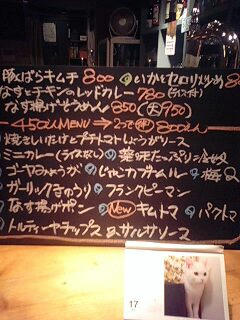 豚ばらキムチ 800 いかとセロリ炒め 80
なすとチキンのレッドカレー 780 (ライス付)
なす揚げそうめん 850 (大950)
450えんMENU → 2つで 800えん
焼きしいたけとプチトマトしょうがソース
ミニカレー(ライスなし) 薬味たっぷり
ゴーヤ じゃこ ナムル 梅
ガーリックきゅうり フランクピーマン
なす揚げポン New キムトマ パクトマ
トルティーヤチップス &サルサソース
17